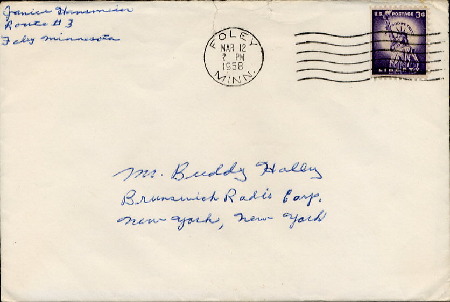 Janice Hansmeier
Route #3
Foley Minnesota
FOLEY
MAR 12
2 PM
1958
MINN.
U.S. POSTAGE 3¢
LIBERTY
Mr. Buddy Holley
Brunswick Radio Corp.
New York, New York